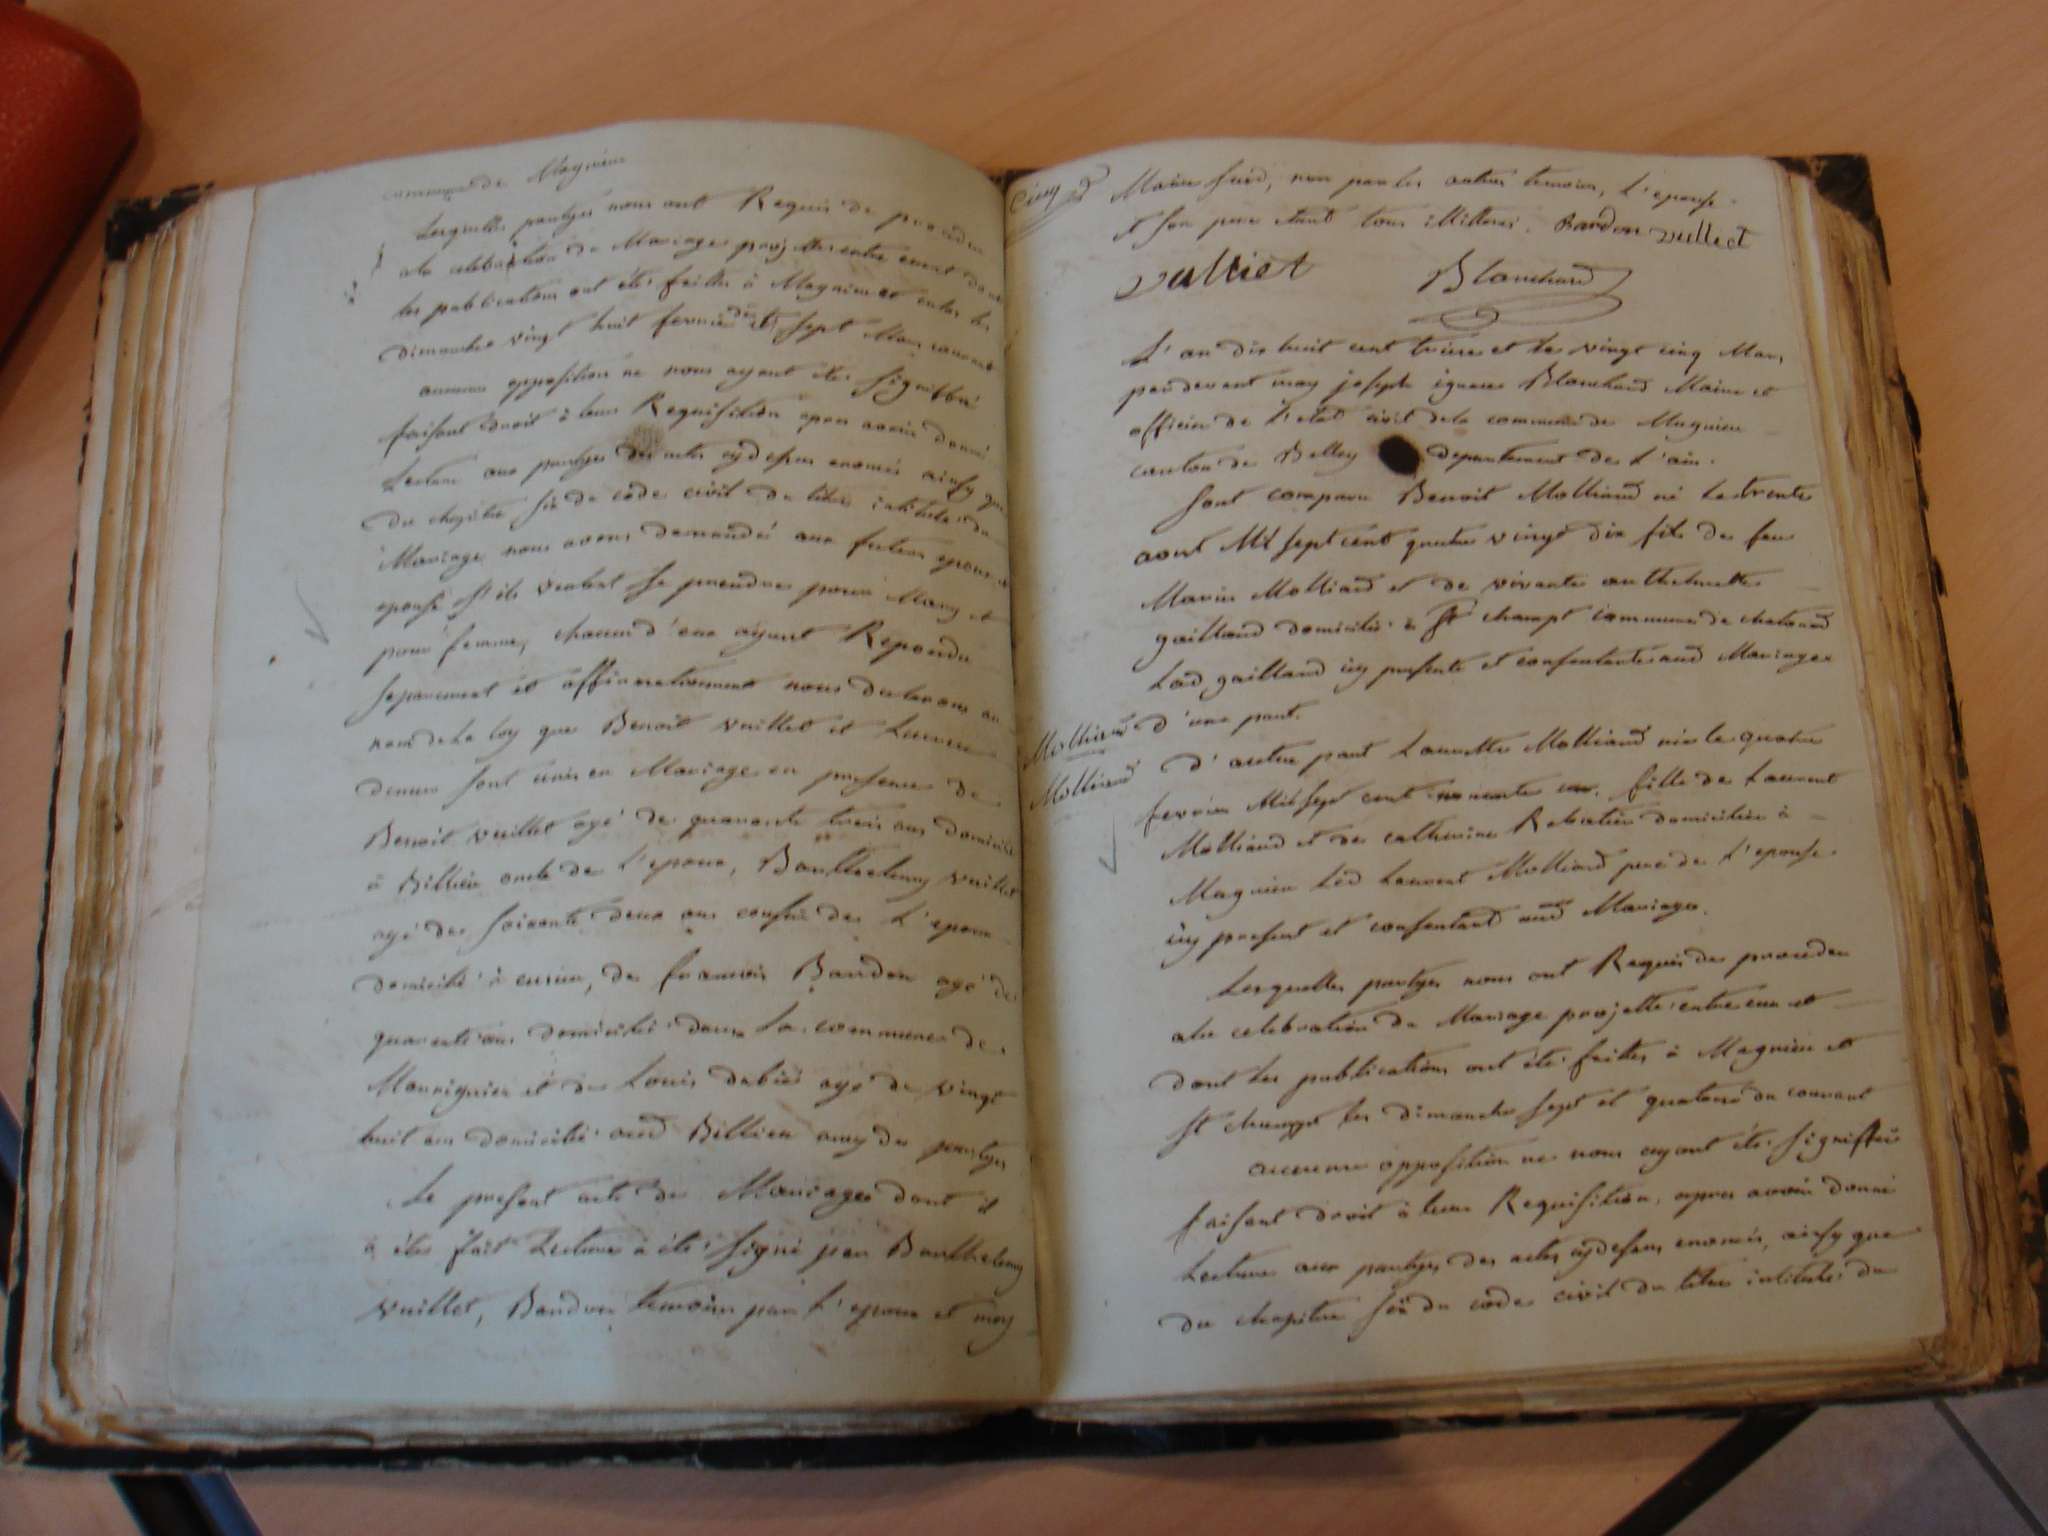 commune de Magnieu
Lesquelles partyes nous ont Requis de proceder
a la celebration du Mariage projetté entre eux et dont
les publications ont été faittes à Magnieu et les
dimanche vingt huit fevrier et sept Mars courant
aucune opposition ne nous ayant été signiffié
faisant droit à leur Requisition apres avoir donné
Lecture aux partyes des actes cydessus enoncés ainsy que
du chapitre six du code civil du titre intitulé du
Mariage nous avons demandé aux futur epoux et
epouse s'ils veulent se prendre pour Mary et
pour femme, chacun d'eux ayant Repondu
separement et affirmativement nous declarons au
nom de la loy que Benoit Vuillet et
sont unis en Mariage en presence de
Benoit Vuillet agé de quarante trois ans domicilié
à Billieu oncle de l'epoux, Barthelemy Vuillet
agé de soixante deux ans cousin de L'epoux
domicilié à cuzieu, de francois Bardon agé de
quarante ans domicilié dans la commune de
et de Louis agé de vingt
huit ans domicilié aud Billieu amy des partyes
Le present acte de Mariage dont il
a été fait Lecture à été signé par Barthelemy
Vuillet, Bardon temoins par L'epoux et moy
cinq d
Maire susd, non par les autres temoins, L'epouse
et son pere etant tous illiterés. Bardon vulliet
vulliet Blanchard
L'an dix huit cent treize et le vingt cinq Mars
pardevant moy joseph ignace Blanchard Maire et
officier de L'etat civil de la commune de Magnieu
canton de Belley departement de L'ain.
Sont comparu Benoit Molliard né le trente
aout Mil sept cent quatre vingt dix fils de feu
Marin Molliard et de vivante anthelmette
gaillard domicilié à St champt commune de chatonod
Lad gaillard icy presente et consentante aud Mariage
d'une part.
Molliard
Molliard
D'autre part Laurette Molliard née le quatre
fevrier Mil sept cent nonante un. fille de Laurent
Molliard et de catherine Rebatier domiciliée à
Magnieu Led Laurent Molliard pere de L'epouse
icy present et consentant aud Mariage.
Lesquelles partyes nous ont Requis de proceder
ala celebration du Mariage projetté entre eux et
dont les publications ont été faittes à Magnieu et
St champt les dimanche sept et quatorze du courant
aucune opposition ne nous ayant été signiffiée
faisant droit à leur Requisition, apres avoir donné
Lecture aux partyes des actes cydessus enoncés, ainsy que
du chapitre six du code civil du titre intitulé du